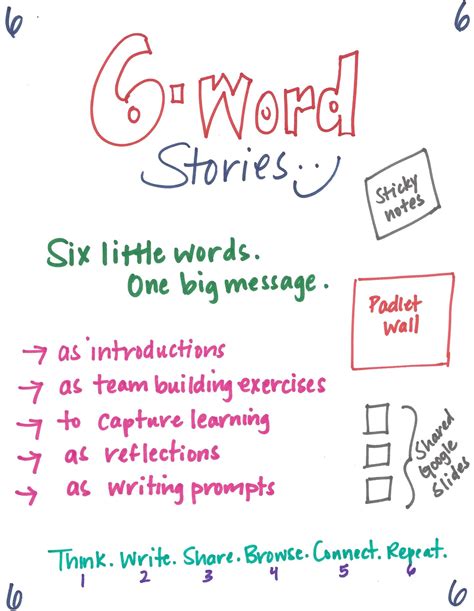 6 6
6-Word
Stories
Sticky
notes
Six little words.
One big message.
Padlet
Wall
→ as introductions
→ as team building exercises
→ to capture learning
→ as reflections
→ as writing prompts
Shared
Google
Slides
Think. Write. Share. Browse. Connect. Repeat.
1 2 3 4 5 6
6 6